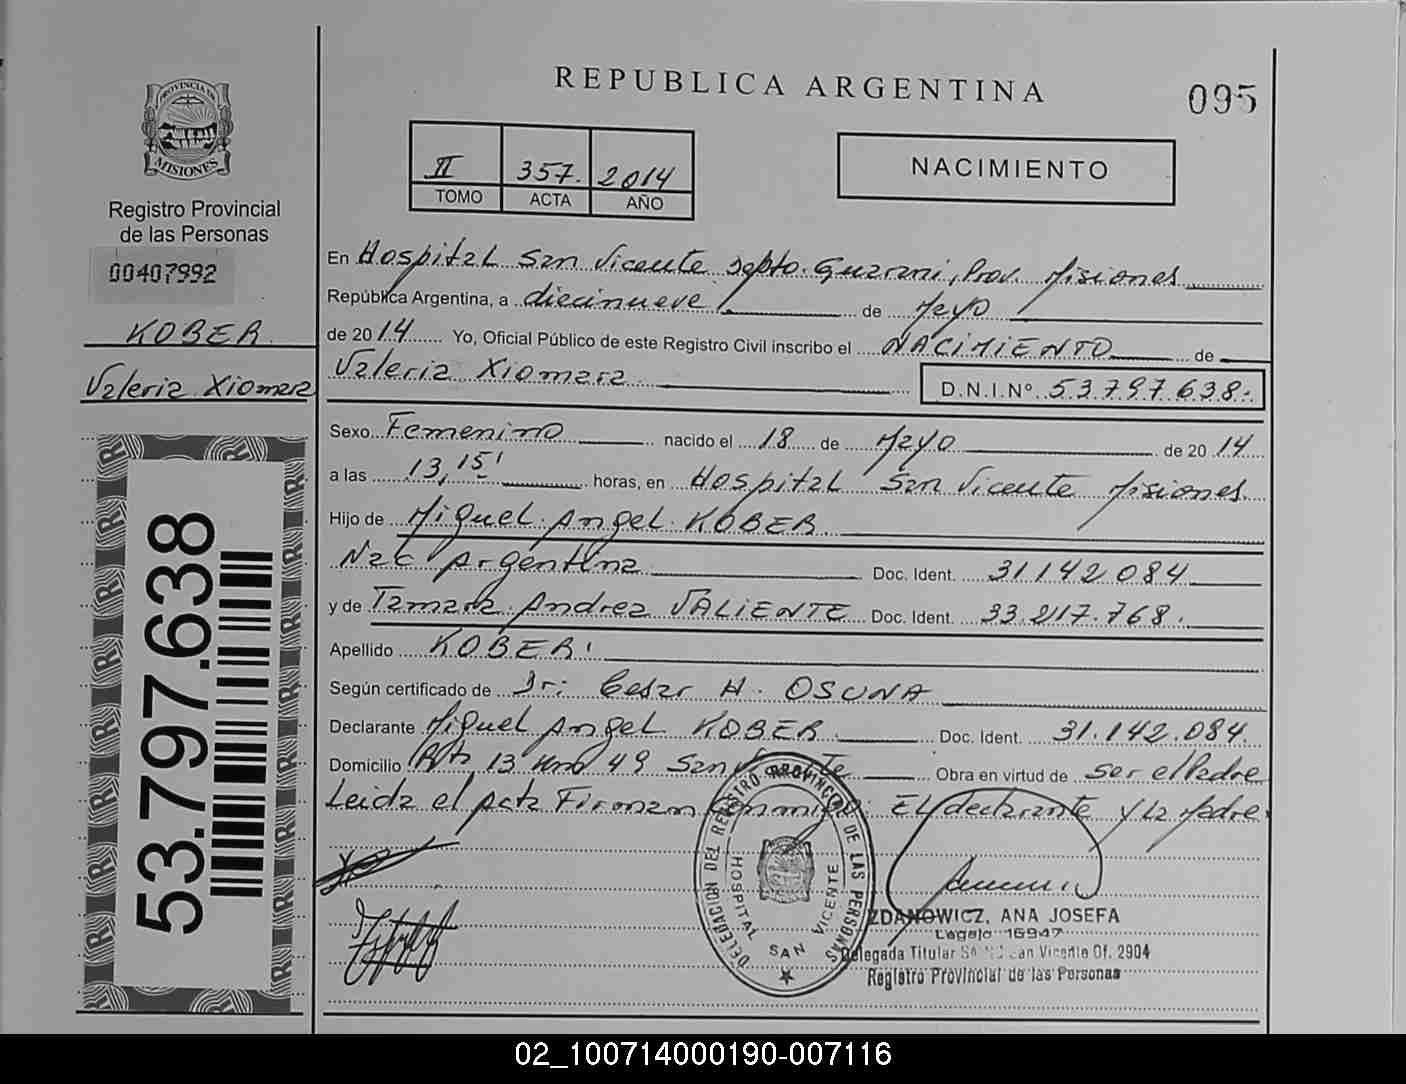 REPUBLICA ARGENTINA
095
PROVINCIA DE
MISIONES
Registro Provincial
de las Personas
00407992
KOBER
Valeria Xiomara
53.797.638
II 357. 2014
TOMO ACTA AÑO
NACIMIENTO
En Hospital San Vicente Dpto. Guaraní, Prov. Misiones
República Argentina, a diecinueve de Mayo
de 2014 Yo, Oficial Público de este Registro Civil inscribo el NACIMIENTO de
Valeria Xiomara D.N.I.Nº 53.797.638.
Sexo Femenino nacido el 18 de Mayo de 2014
a las 13,15' horas, en Hospital San Vicente Misiones
Hijo de Miguel Angel KOBER
Nac Argentina Doc. Ident. 31.142.084
y de Tamara Andrea VALIENTE Doc. Ident. 33.217.768.
Apellido KOBER
Según certificado de Dr: Cesar H. OSUNA
Declarante Miguel Angel KOBER Doc. Ident. 31.142.084
Domicilio 13 49 San Obra en virtud de ser el Padre
Leida el Acta Firman Conmigo: El declarante y la Madre.
DELEGACION DEL REGISTRO PROVINCIAL DE LAS PERSONAS
HOSPITAL SAN VICENTE
ZDANOWICZ, ANA JOSEFA
Legajo 16947
Delegada Titular San Vicente Of. 2904
Registro Provincial de las Personas
02_100714000190-007116